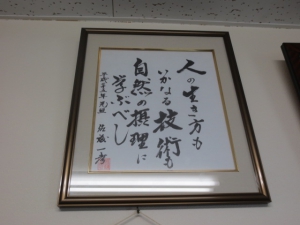 人の生き方も
いかなる技術も
自然の摂理に
学ぶべし
平成二十五年 元旦